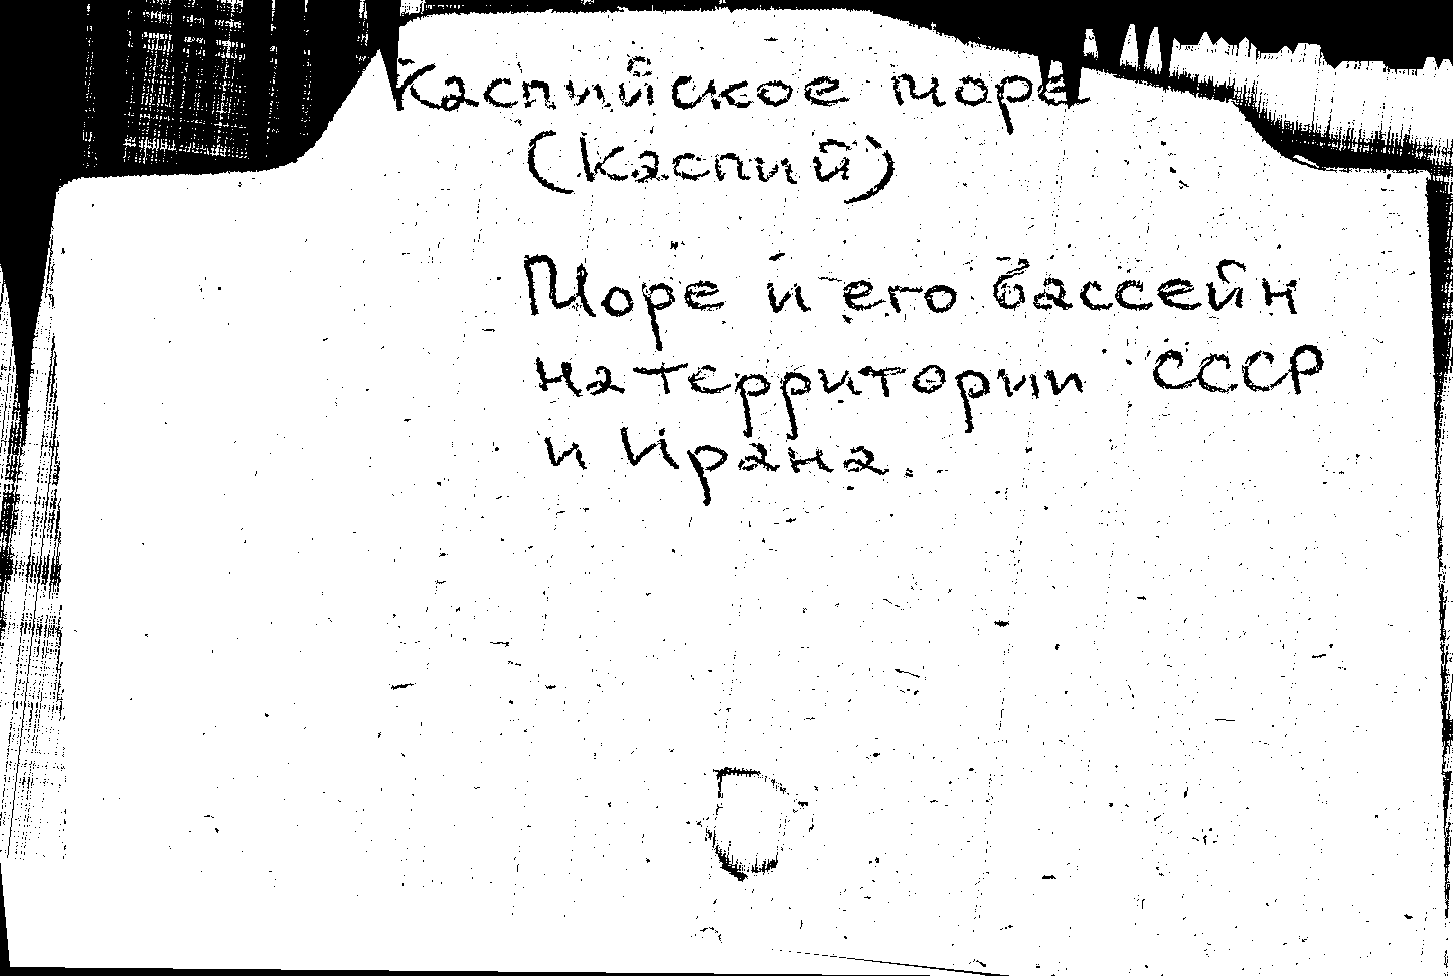 Каспийское море
(Каспий)
Море и его бассейн
на территории СССР
и Ирана.